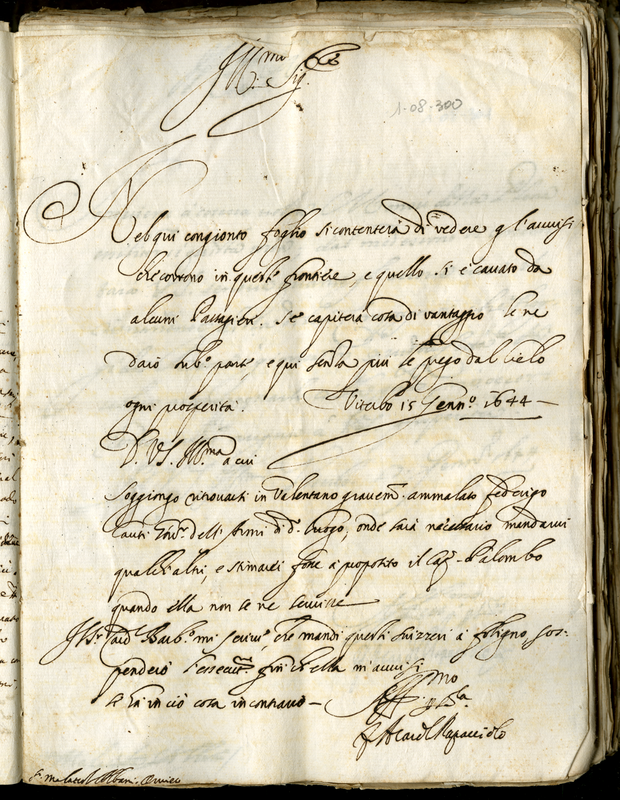 Ill.mo Sig.re
1-08-300
Nel qui congionto foglio si contenterà di vedere gl'auuisi
che corrono in queste frontiere, e quello si è cauato da
alcuni Passagieri. Se capiterà cosa di vantaggio le ne
darò sub.o parte, e qui senza più le prego dal Cielo
ogni prosperità. Viterbo 15 Genn.o 1644
D. V.S. Ill.ma a cui
Soggiongo ritrouarsi in Valentano grauem.te ammalato Federigo
delli di d.o luogo, onde sarà necessario mandarui
qualch'altri, e stimarei fosse a proposito il Cap. Palombo
quando ella non se ne seruisse
Il Sr. Card. Barb.o mi scriue, che mandi questi suizzeri à foligno, sos-
penderò l'esecut.ne finch'ella m'auuisi
se hà in ciò cosa in contrario